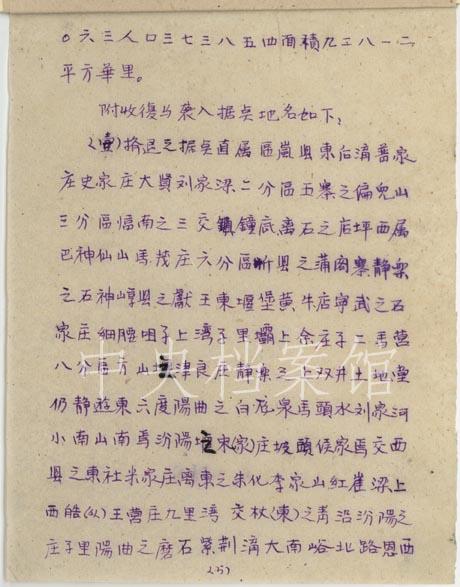 〇六三人口三七三八五四面積九三八一·二
平方華里。
附收復与袭入据奌地名如下：
(壹)擠退之据奌直属區嵐县東后溝普家
庄史家庄大賢刘家梁二分區五寨之偏兜山
三分區临南之三交鎮鐘底离石之店坪西属
巴神仙山馬茂庄六分區忻县之蒲閣寨静樂
之石神崞县之獻王東堰堡黄牛店宁武之石
家庄細腰咀子上湾子里壩上余庄子二馬营
八分區方山津良庄静樂三上双井土地堂
仍静遊東六度陽曲之白居泉馬頭水刘家河
小南山南焉汾陽宋(家)庄坡頭侯家焉交西
县之東社米家庄离東之朱化李家山紅崔梁上
西皓(么)王营庄九里湾交林(東)之青沿汾陽之
庄子里陽曲之磨石紫荆溝大南峪北路恩西
(25)
中央档案馆